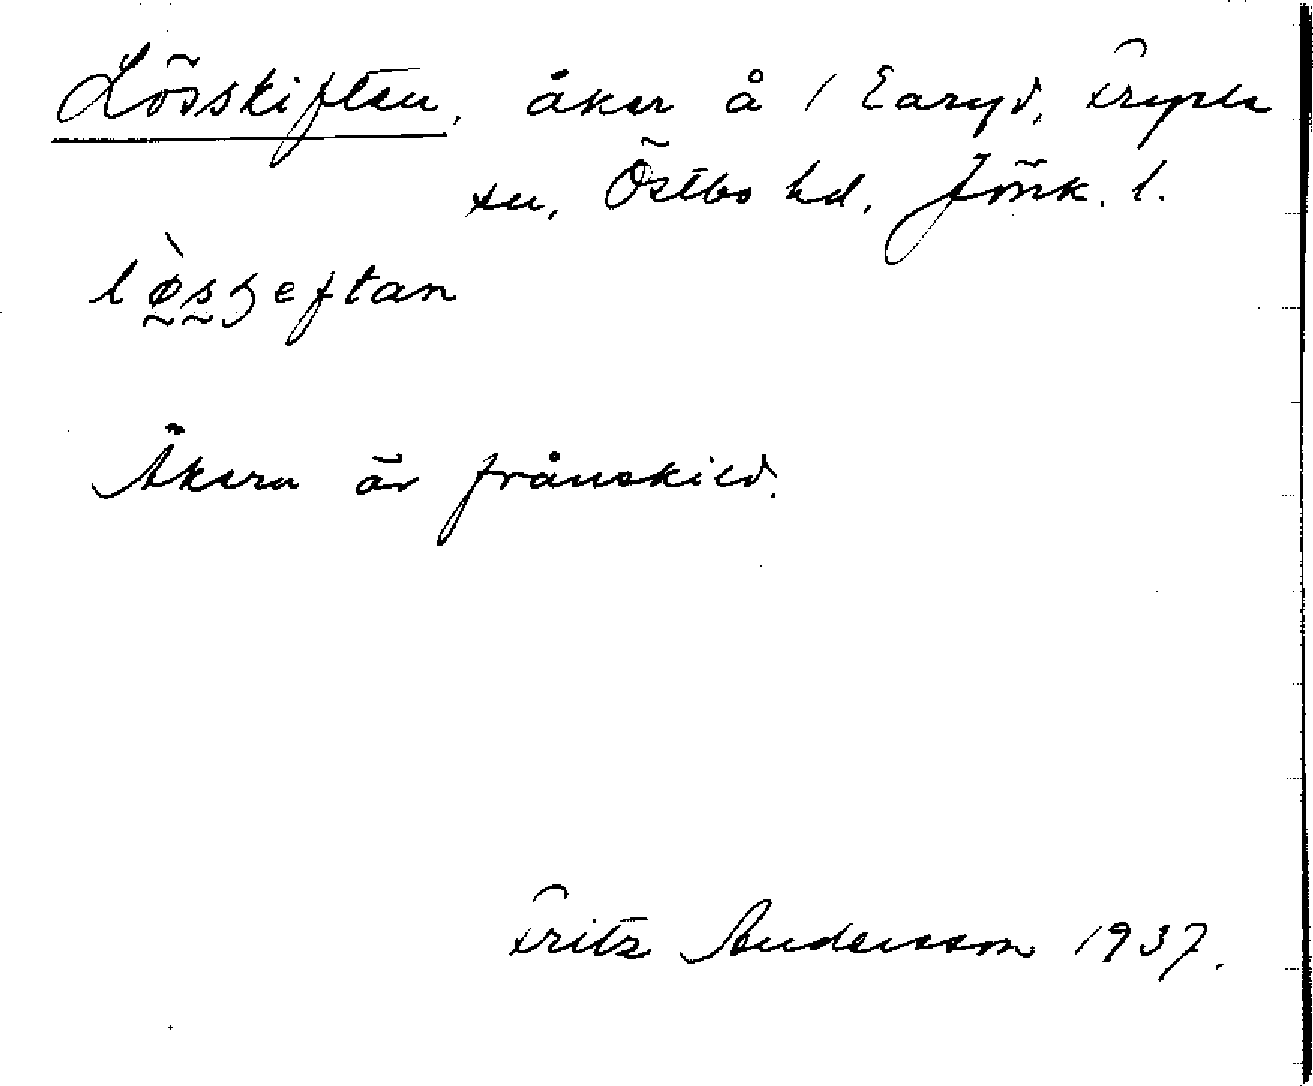 Lösskiften, åker å 1 Earyd, Fryele
sn, Östbo hd, Jönk. l.
l ø̀sʒeftan
Åkern är frånskild.
Fritz Andersson 1937.